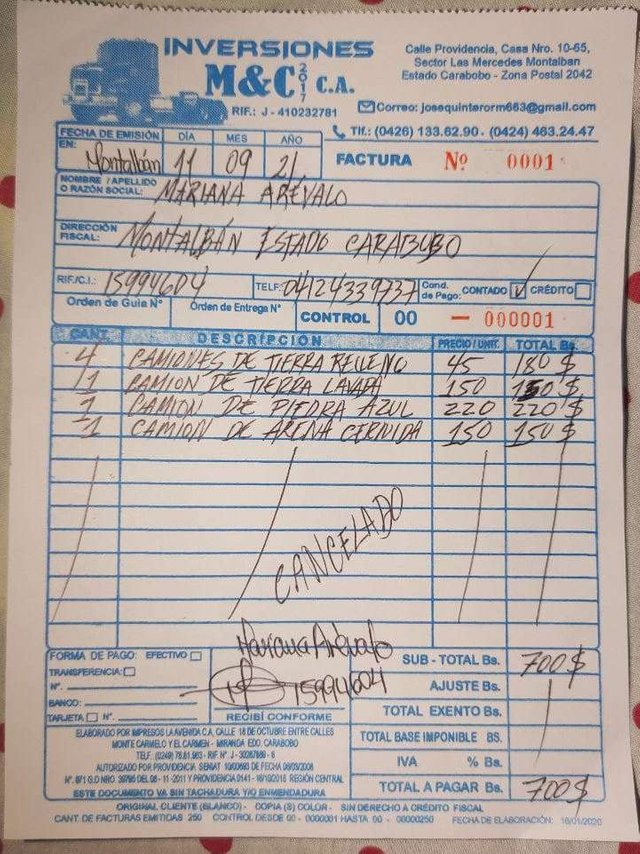 INVERSIONES
M&C 2017 C.A.
RIF.: J - 410232781
Calle Providencia, Casa Nro. 10-65,
Sector Las Mercedes Montalban
Estado Carabobo - Zona Postal 2042
Correo: josequinterorm663@gmail.com
Tlf.: (0426) 133.62.90 - (0424) 463.24.47
FECHA DE EMISIÓN EN: Montalbán DÍA 11 MES 09 AÑO 21
FACTURA Nº 0001
NOMBRE / APELLIDO O RAZÓN SOCIAL: MARIANA AREVALO
DIRECCIÓN FISCAL: MONTALBÁN ESTADO CARABOBO
RIF/C.I.: 15994604 TELF: 04124339737 Cond. de Pago: CONTADO CRÉDITO
Orden de Guia Nº Orden de Entrega Nº CONTROL 00 - 000001
CANT. DESCRIPCION PRECIO / UNIT. TOTAL Bs.
4 CAMIONES DE TIERRA RELLENO 45 180 $
1 CAMION DE TIERRA LAVADA 150 150 $
1 CAMION DE PIEDRA AZUL 220 220 $
1 CAMION DE ARENA CERNIDA 150 150 $
CANCELADO
FORMA DE PAGO: EFECTIVO
TRANSFERENCIA:
Nº.
BANCO:
TARJETA Nº.
Mariana Arévalo
15994604
RECIBÍ CONFORME
SUB - TOTAL Bs. 700 $
AJUSTE Bs.
TOTAL EXENTO Bs.
TOTAL BASE IMPONIBLE Bs.
IVA % Bs.
TOTAL A PAGAR Bs. 700 $
ELABORADO POR IMPRESOS LA AVENIDA C.A, CALLE 18 DE OCTUBRE ENTRE CALLES
MONTE CARMELO Y EL CARMEN - MIRANDA EDO. CARABOBO
AUTORIZADO POR PROVIDENCIA SENIAT
REGIÓN CENTRAL
ESTE DOCUMENTO VA SIN TACHADURA Y/O ENMENDADURA
ORIGINAL CLIENTE (BLANCO) - COPIA (S) COLOR - SIN DERECHO A CRÉDITO FISCAL
CANT. DE FACTURAS EMITIDAS 250 CONTROL DESDE 00 - 0000001 HASTA 00 - 00000250 FECHA DE ELABORACIÓN: 16/01/2020